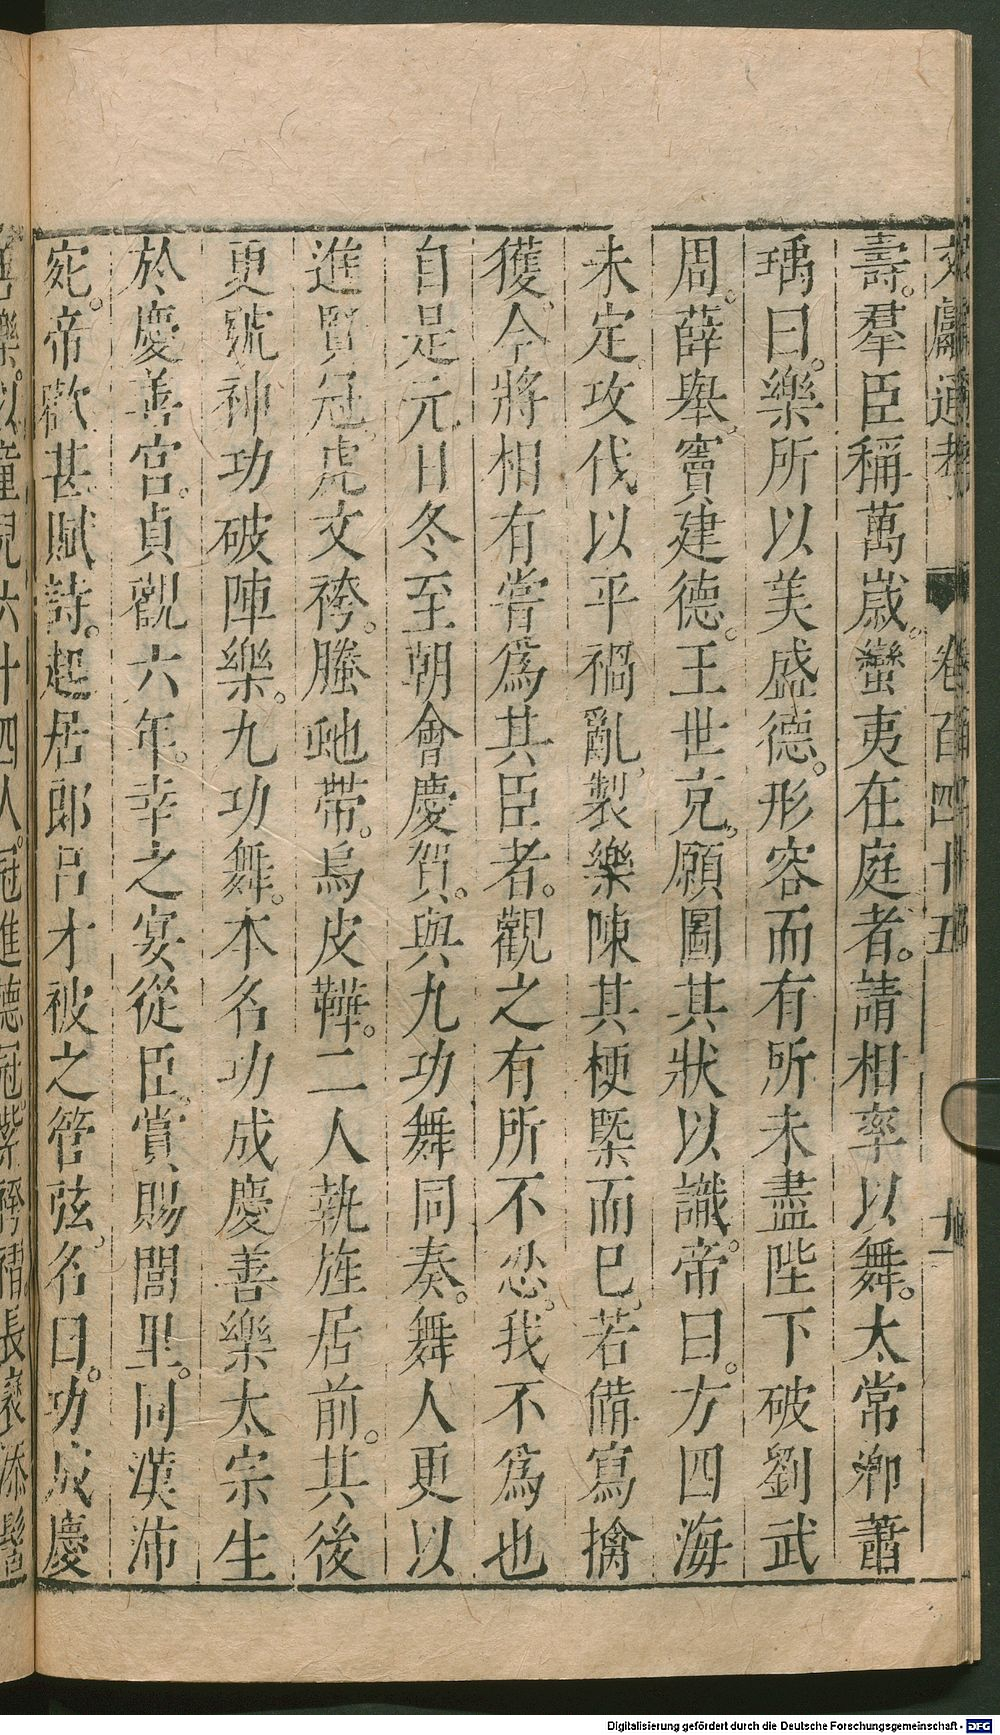 文獻通考 卷百四十五 九
壽。羣臣稱萬歲。蠻夷在庭者。請相率以舞。太常卿蕭
瑀曰。樂所以美盛德。形容而有所未盡陛下破劉武
周。薛舉。竇建德。王世克。願圖其狀以識。帝曰。方四海
未定。攻伐以平禍亂。製樂陳其梗槩而已。若備寫擒
獲。今將相有嘗爲其臣者。觀之有所不忍。我不爲也
自是元日冬至朝會慶賀。與九功舞同奏。舞人更以
進賢冠。虎文袴。螣虵帶。烏皮鞾。二人執旌居前。其後
更號神功破陣樂。九功舞。本名功成慶善樂太宗生
於慶善宮。貞觀六年。幸之宴從臣。賞賜閭里。同漢沛
宛。帝歡甚賦詩。起居郎呂才被之管弦。名曰。功成慶
善樂。以童兒六十四人。冠進德冠。紫袴褶長袖漆髻